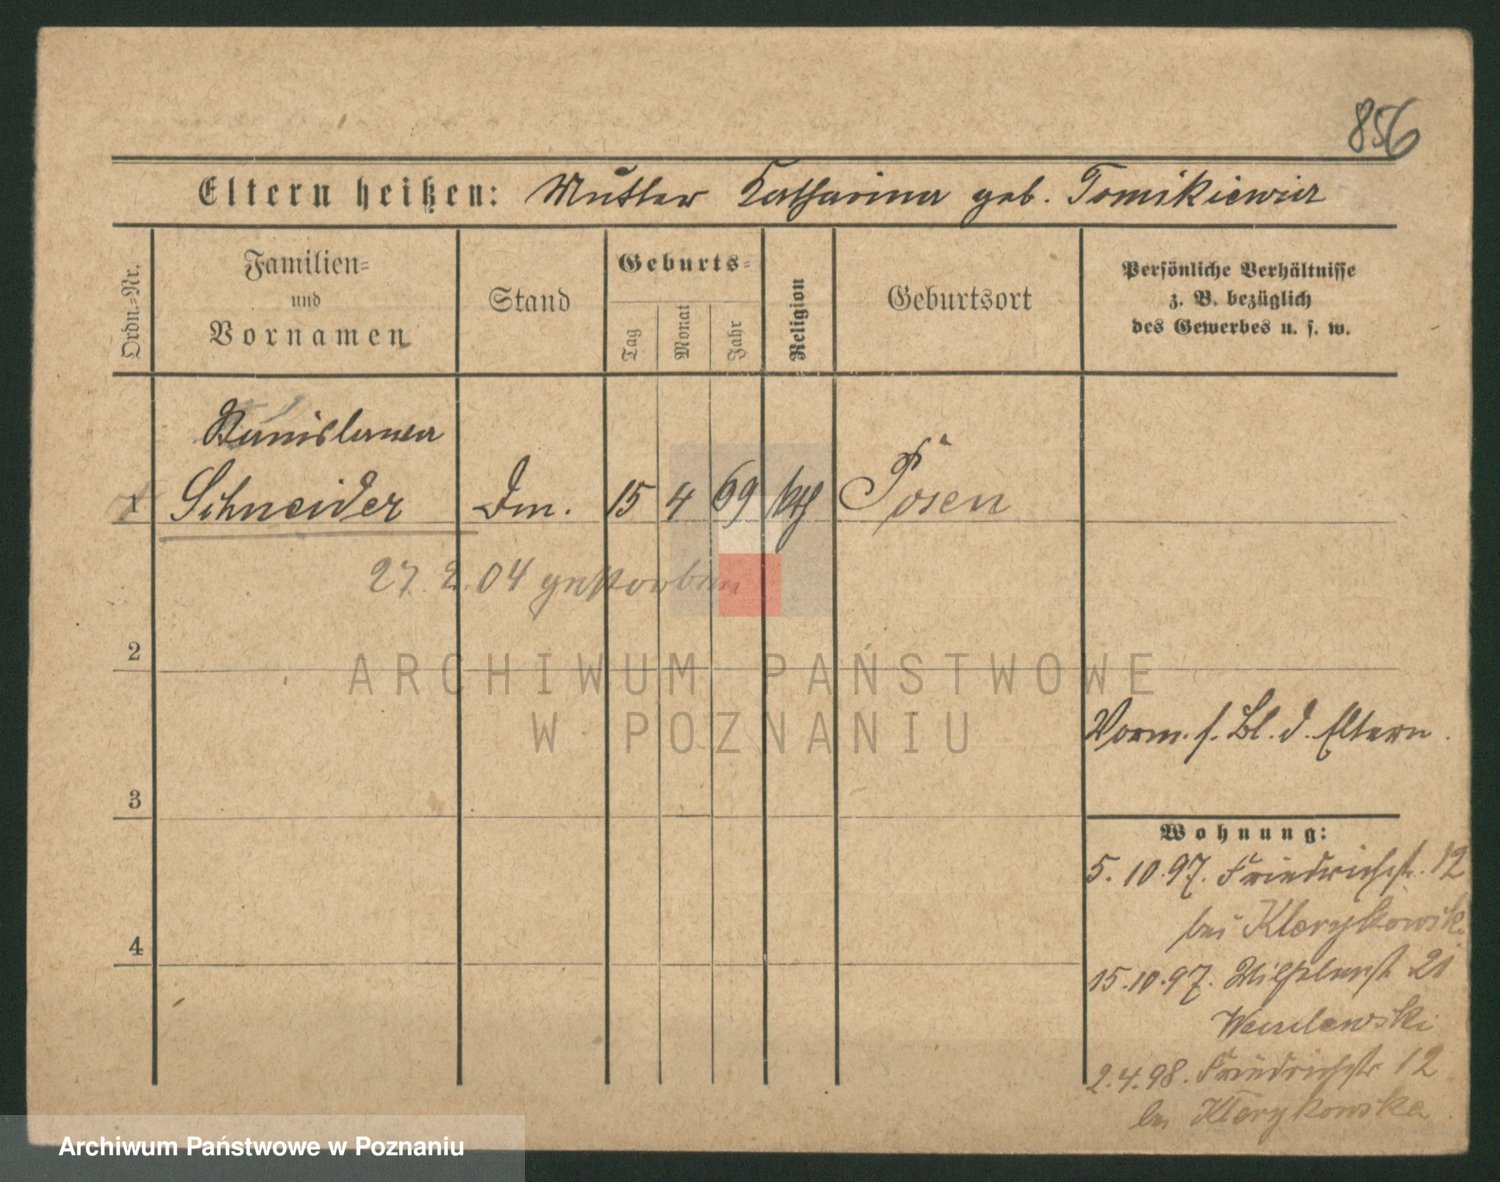 856
Eltern heißen: Mutter Katharina geb. Tomikiewicz
Ordn.-Nr.
Familien-
und
Vornamen
Stand
Geburts-
Tag
Monat
Jahr
Religion
Geburtsort
Persönliche Verhältnisse
z. B. bezüglich
des Gewerbes u. s. w.
Stanislawa
1 Schneider Dm. 15 4 69 kth Posen
27. 2. 04 gestorben
2
ARCHIWUM PAŃSTWOWE
W POZNANIU
Vorm. s. Bl. d. Eltern.
3
Wohnung:
5. 10. 97. Friedrichstr. 12
bei Klerykowsk
4
15. 10. 97. 21
2. 4. 98. Friedrichstr 12
bei Klerykowska
Archiwum Państwowe w Poznaniu